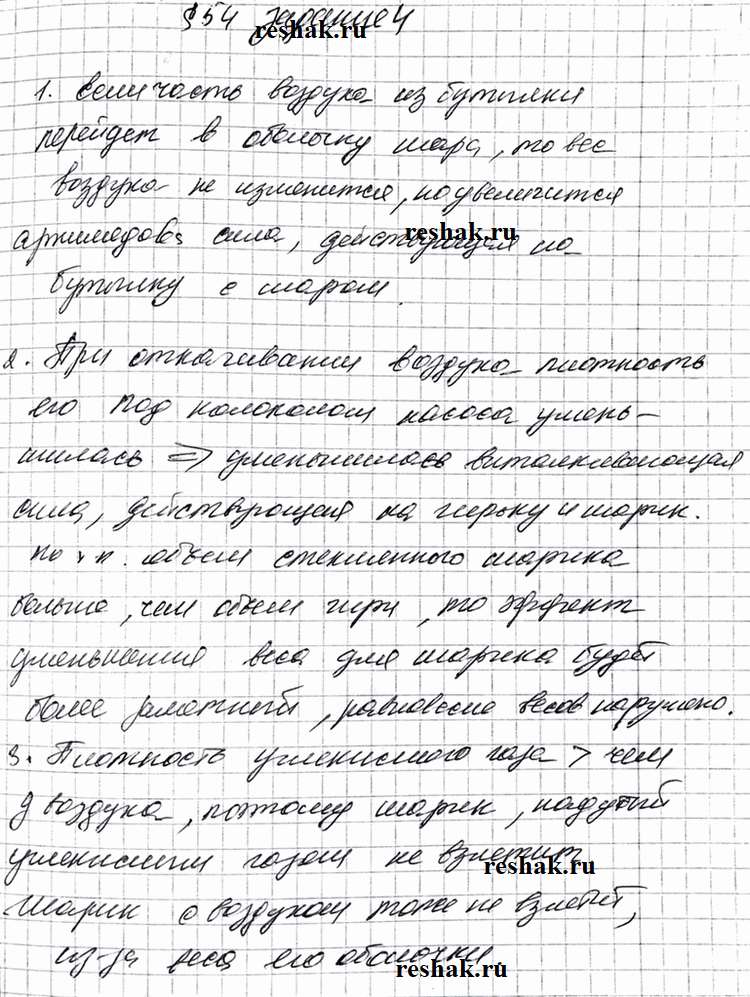 §54 задание 4
reshak.ru
1. Если часть воздуха из бутылки
перейдет в оболочку шара, то вес
воздуха не изменится, но увеличится
reshak.ru
архимедова сила, действующая на
бутылку с шаром.
2. При откачивании воздуха плотность
его под колоколом насоса умень-
шилась => уменьшилась выталкивающая
сила, действующая на гирьку и шарик.
Но т.к. объем стеклянного шарика
больше, чем объем гири, то эффект
уменьшения веса для шарика будет
более заметный, равновесие весов нарушено.
3. Плотность углекислого газа > чем
у воздуха, поэтому шарик, надутый
углекислым газом не взлетит.
reshak.ru
Шарик с воздухом тоже не взлетит,
из-за веса его оболочки.
reshak.ru